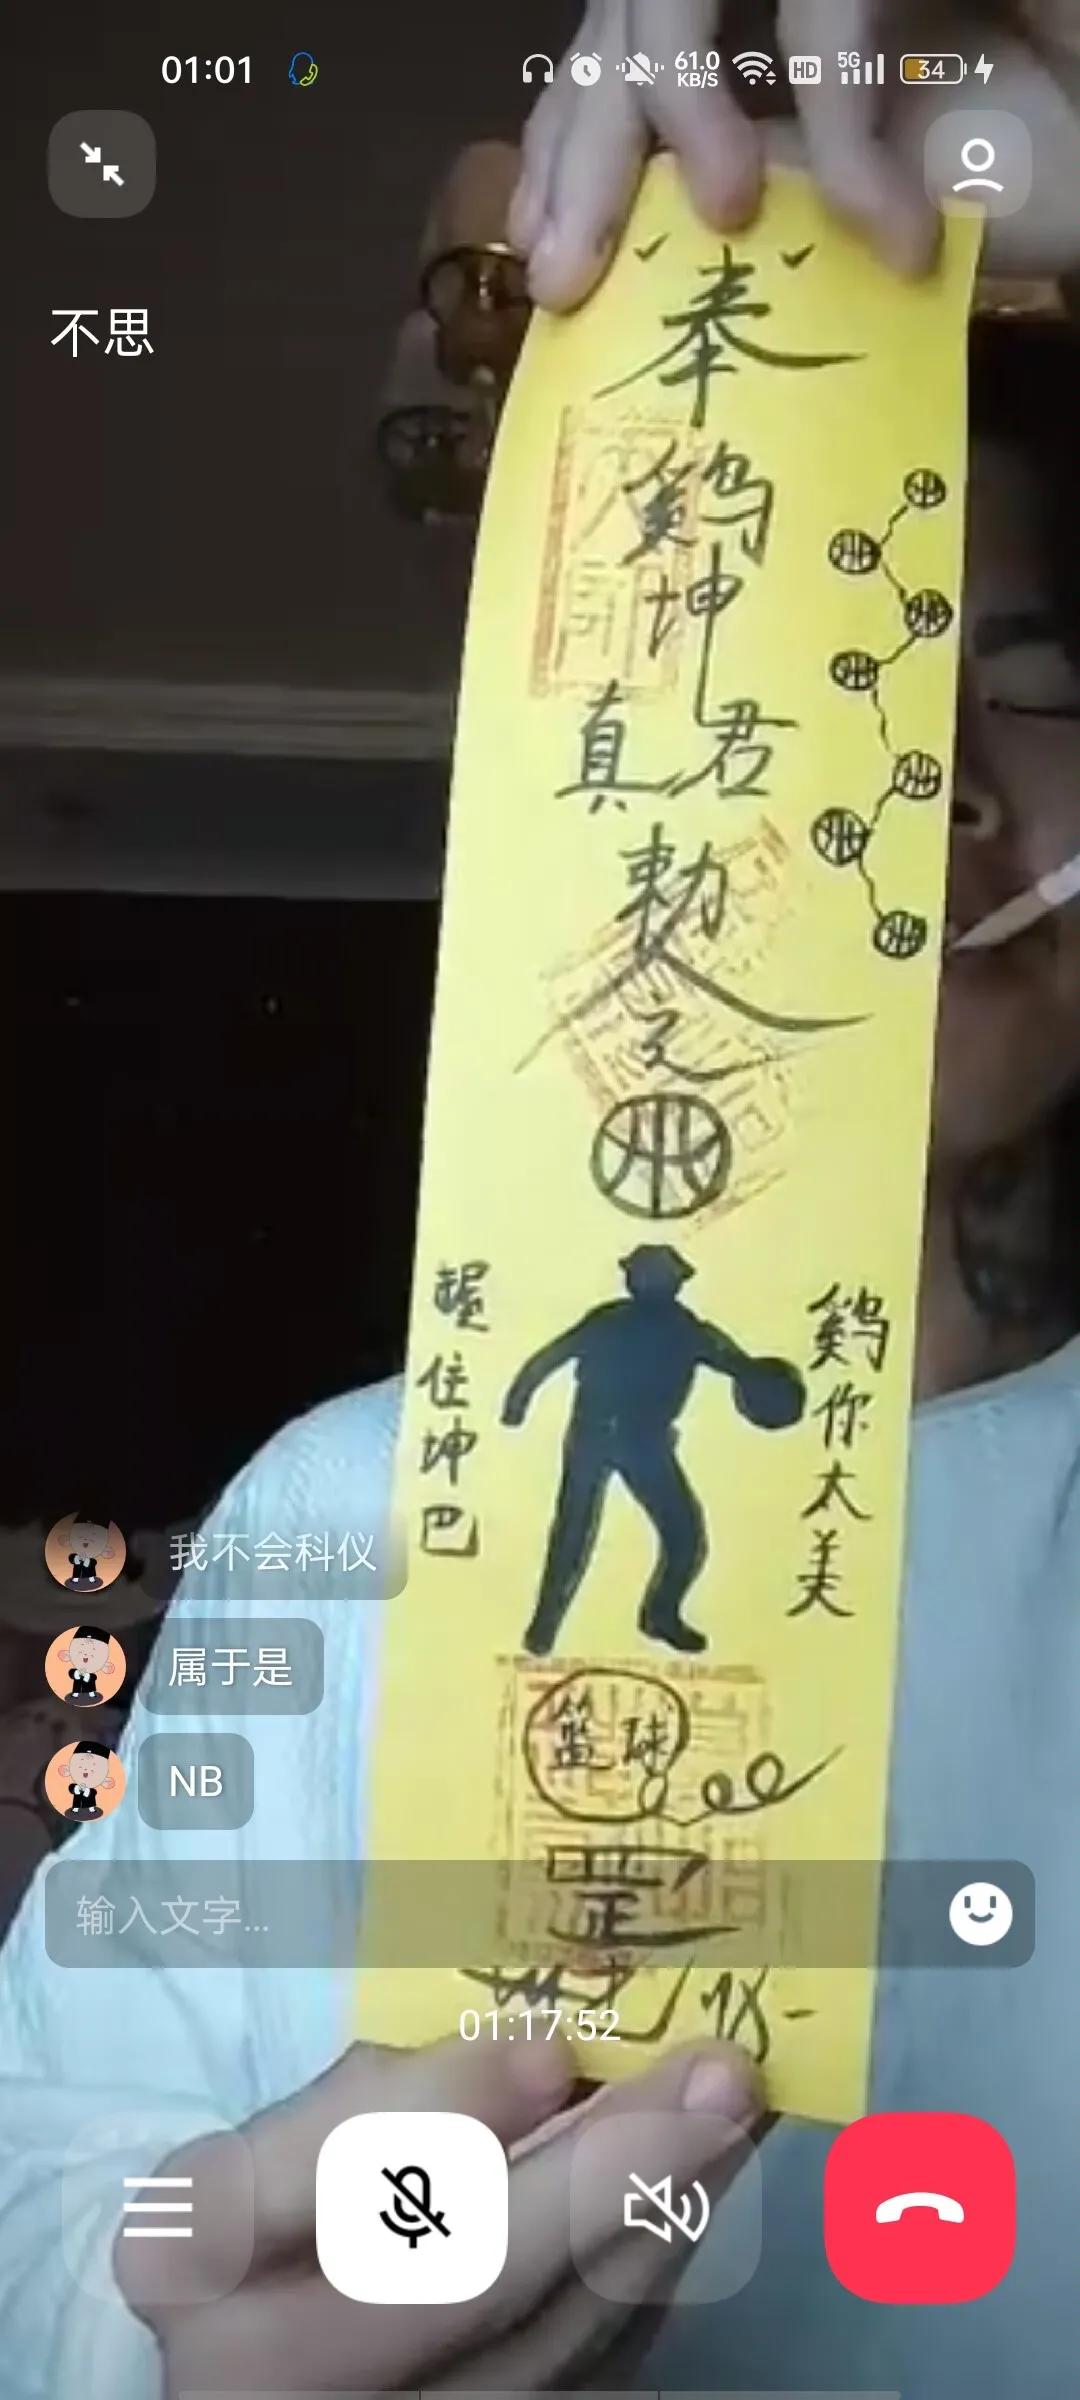 01:01
61.0
KB/S
HD
5G
34
不思
奉
鷄
坤
真君
勅
之
鷄你太美
住坤巴
篮球
罡
我不会科仪
属于是
NB
输入文字...
01:17:52